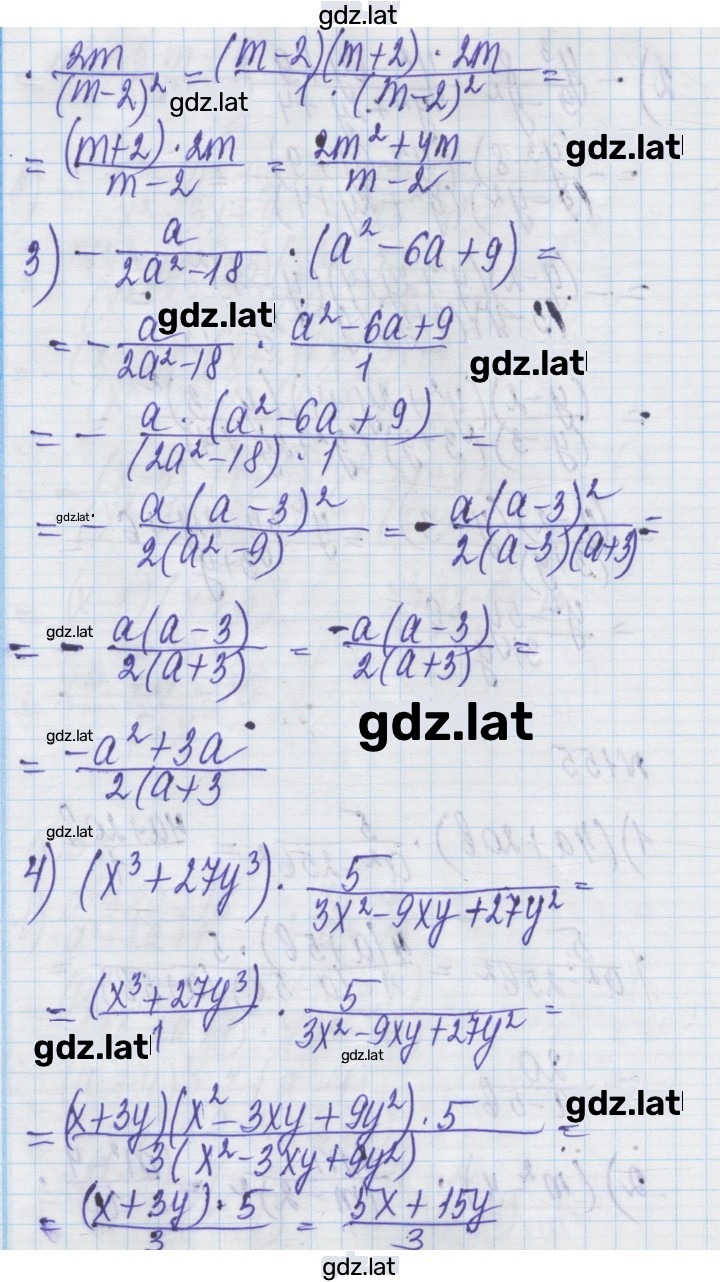 gdz.lat
· 2m/(m-2)² = (m-2)(m+2)·2m/1·(m-2)² =
gdz.lat
= (m+2)·2m/m-2 = 2m²+4m/m-2
gdz.lat
3) - a/2a²-18 · (a²-6a+9) =
gdz.lat
= - a/2a²-18 · a²-6a+9/1
gdz.lat
= - a·(a²-6a+9)/(2a²-18)·1 =
gdz.lat
= - a(a-3)²/2(a²-9) = - a(a-3)²/2(a-3)(a+3) =
gdz.lat
= - a(a-3)/2(a+3) = -a(a-3)/2(a+3) =
gdz.lat
gdz.lat
= -a²+3a/2(a+3
gdz.lat
4) (x³+27y³) · 5/3x²-9xy+27y² =
= (x³+27y³)/1 · 5/3x²-9xy+27y² =
gdz.lat
gdz.lat
gdz.lat
= (x+3y)(x²-3xy+9y²)·5/3(x²-3xy+9y²) =
= (x+3y)·5/3 = 5x+15y/3
gdz.lat